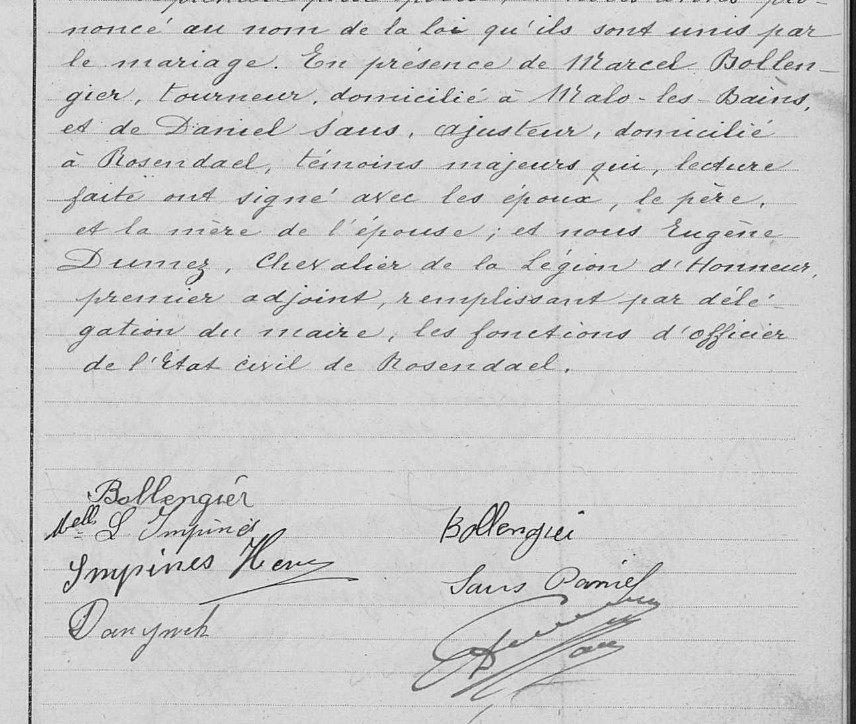 noncé au nom de la loi qu'ils sont unis par
le mariage. En présence de Marcel Bollen-
gier, tourneur, domicilié à Malo-les-Bains,
et de Daniel Sans, ajusteur, domicilié
à Rosendael, témoins majeurs qui, lecture
faite ont signé avec les époux, le père,
et la mère de l'épouse; et nous Eugène
Dumez, Chevalier de la Légion d'Honneur,
premier adjoint, remplissant par délé-
gation du maire, les fonctions d'officier
de l'Etat civil de Rosendael.
Bollengiér
Melle L Impines
Impines Henri
Bollengier
Sans Daniel